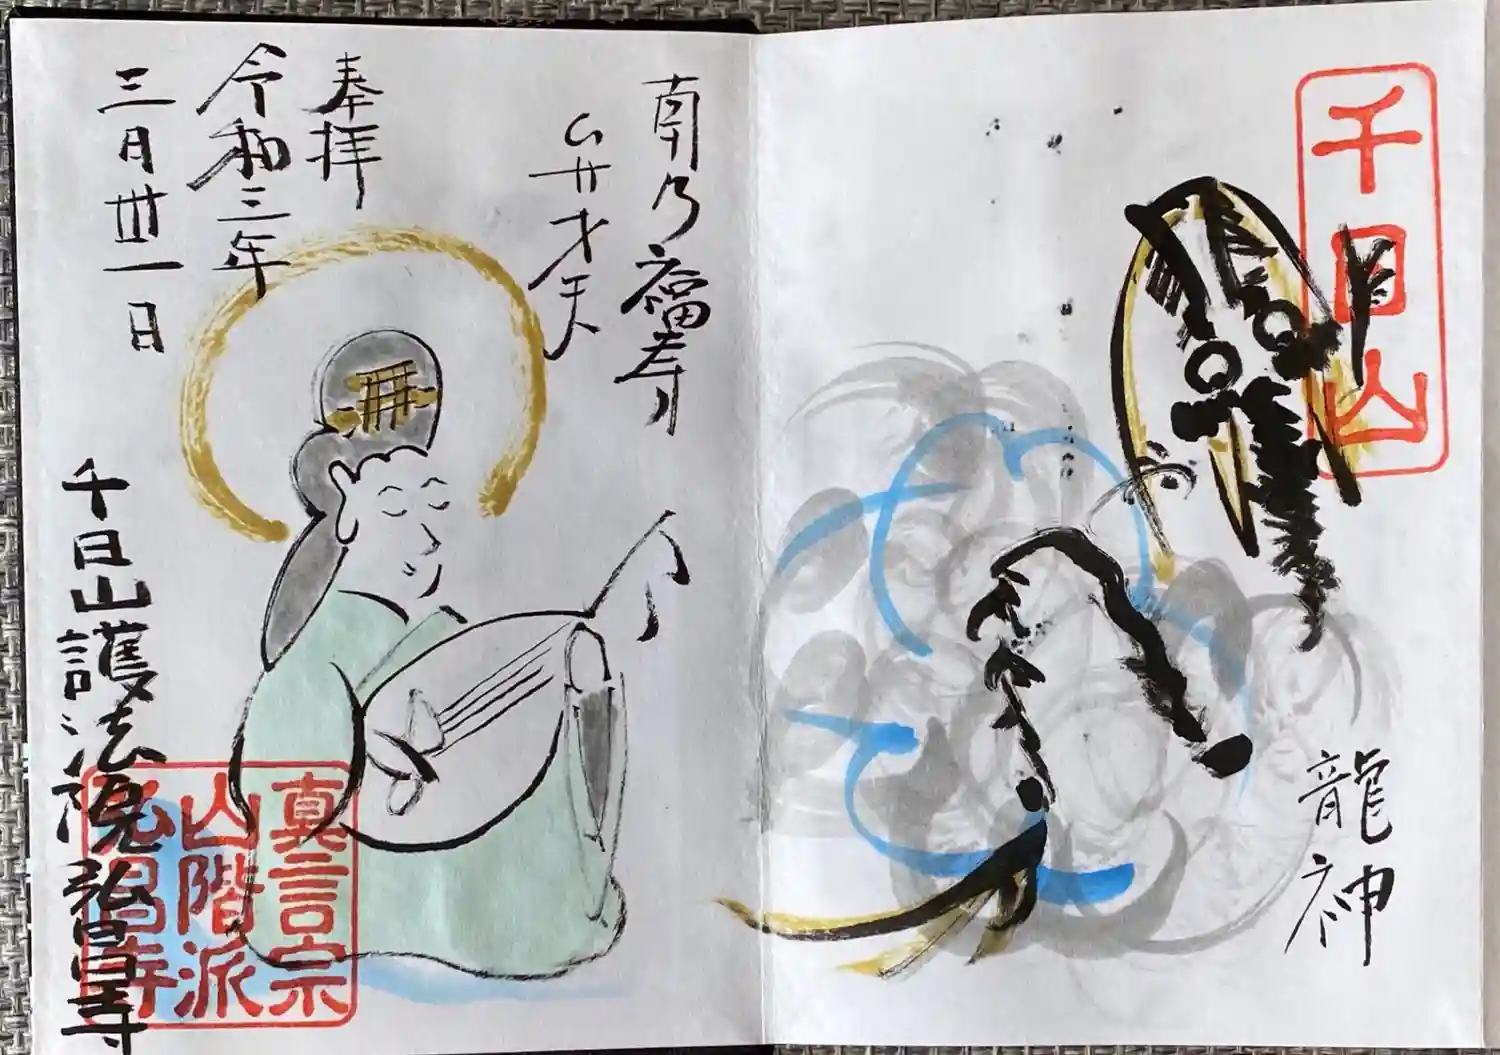 千日山
龍神
南乃福寿
弁才天
奉拝
令和三年
三月丗一日
千日山護法院弘昌寺
真言宗
山階派
弘昌寺